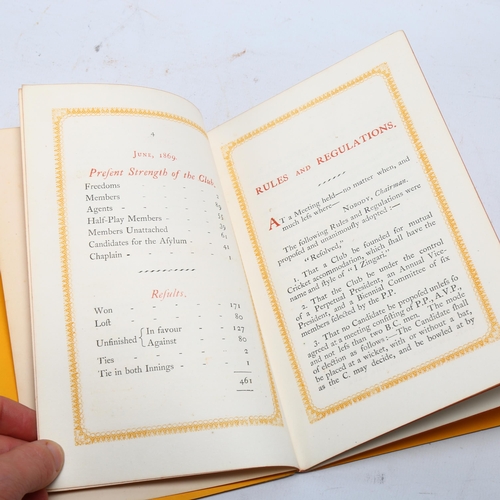 4
June, 1869.
Preſent Strength of the Club.
Freedoms
Members
Agents
Half-Play Members
Members Unattached
Candidates for the Aſylum
Chaplain
Reſults.
Won - - - 171
Loſt - - - 80
Unfiniſhed { In favour 127
Againſt 80
Ties - - - 2
Tie in both Innings - 1
461
RULES AND REGULATIONS.
At a Meeting held—no matter when, and
much leſs where— Nobody, Chairman.
The following Rules and Regulations were
propoſed and unanimouſly adopted:—
"Reſolved,"
1. That a Club be founded for mutual
Cricket accommodation, which ſhall have the
name and ſtyle of "I Zingari."
2. That the Club be under the control
of a Perpetual Preſident, an Annual Vice-
Preſident, and a Biennial Committee of ſix
members ſelected by the P.P.
3. That no Candidate be propoſed unleſs ſo
agreed at a meeting conſiſting of P.P., A.V.P.,
and not leſs than two B.C. men. The mode
of election as follows:—The Candidate ſhall
be placed at a wicket, with or without a bat,
as the C. may decide, and be bowled at by